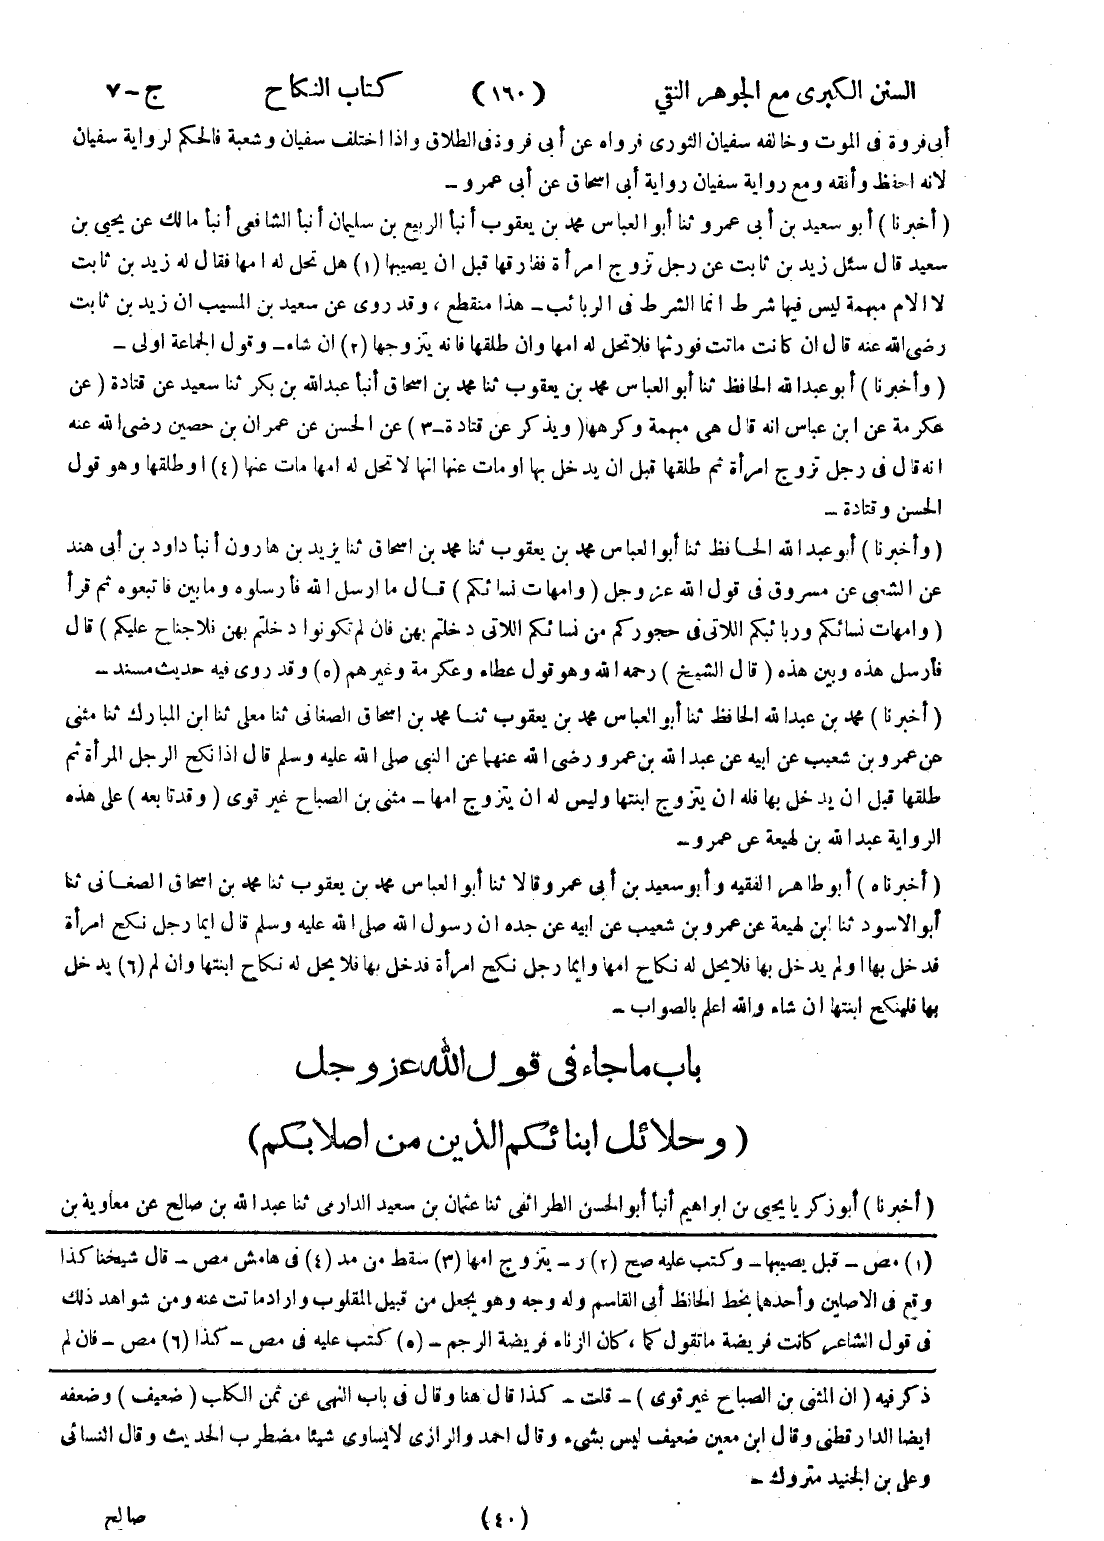 السنن الكبرى مع الجوهر النقي (١٦٠) كتاب النكاح ج-٧
أبى فروة فى الموت وخالفه سفيان الثورى فرواه عن أبى فروة فى الطلاق واذا اختلف سفيان وشعبة فالحكم لرواية سفيان
لانه احفظ وأفقه ومع رواية سفيان رواية أبى اسحاق عن أبى عمرو -
(أخبرنا) أبو سعيد بن أبى عمرو ثنا أبو العباس محمد بن يعقوب أنبأ الربيع بن سليمان أنبأ الشافعى أنبأ مالك عن يحيى بن
سعيد قال سئل زيد بن ثابت عن رجل تزوج امرأة ففارقها قبل ان يصيبها (١) هل تحل له امها فقال له زيد بن ثابت
لا الام مبهمة ليس فيها شرط انما الشرط فى الربائب - هذا منقطع ، وقد روى عن سعيد بن المسيب ان زيد بن ثابت
رضى الله عنه قال ان كانت ماتت فورثها فلا تحل له امها وان طلقها فانه يتزوجها (٢) ان شاء - وقول الجماعة اولى -
(وأخبرنا) أبو عبد الله الحافظ ثنا أبو العباس محمد بن يعقوب ثنا محمد بن اسحاق أنبأ عبد الله بن بكر ثنا سعيد عن قتادة (عن
عكرمة عن ابن عباس انه قال هى مبهمة وكرهها (ويذكر عن قتادة-٣) عن الحسن عن عمران بن حصين رضى الله عنه
انه قال فى رجل تزوج امرأة ثم طلقها قبل ان يدخل بها او مات عنها انها لا تحل له امها مات عنها (٤) او طلقها وهو قول
الحسن وقتادة -
(وأخبرنا) أبو عبد الله الحافظ ثنا أبو العباس محمد بن يعقوب ثنا محمد بن اسحاق ثنا يزيد بن هارون أنبأ داود بن أبى هند
عن الشعبى عن مسروق فى قول الله عز وجل (وامهات نسائكم) قال ما ارسل الله فأرسلوه وما بين فاتبعوه ثم قرأ
(وامهات نسائكم وربائبكم اللاتى فى حجوركم من نسائكم اللاتى دخلتم بهن فان لم تكونوا دخلتم بهن فلا جناح عليكم) قال
فأرسل هذه وبين هذه (قال الشيخ) رحمه الله وهو قول عطاء وعكرمة وغيرهم (٥) وقد روى فيه حديث مسند -
(أخبرنا) محمد بن عبد الله الحافظ ثنا أبو العباس محمد بن يعقوب ثنا محمد بن اسحاق الصغانى ثنا معلى ثنا ابن المبارك ثنا مثنى
عن عمرو بن شعيب عن ابيه عن عبد الله بن عمرو رضى الله عنهما عن النبى صلى الله عليه وسلم قال اذا نكح الرجل المرأة ثم
طلقها قبل ان يدخل بها فله ان يتزوج ابنتها وليس له ان يتزوج امها - مثنى بن الصباح غير قوى (وقد تابعه) على هذه
الرواية عبد الله بن لهيعة عن عمرو -
(أخبرناه) أبو طاهر الفقيه وأبو سعيد بن أبى عمرو قالا ثنا أبو العباس محمد بن يعقوب ثنا محمد بن اسحاق الصغانى ثنا
أبو الاسود ثنا ابن لهيعة عن عمرو بن شعيب عن ابيه عن جده ان رسول الله صلى الله عليه وسلم قال ايما رجل نكح امرأة
فدخل بها او لم يدخل بها فلا يحل له نكاح امها وايما رجل نكح امرأة فدخل بها فلا يحل له نكاح ابنتها وان لم (٦) يدخل
بها فلينكح ابنتها ان شاء والله اعلم بالصواب -
باب ما جاء فى قول الله عز وجل
(وحلائل ابنائكم الذين من اصلابكم)
(أخبرنا) أبو زكريا يحيى بن ابراهيم أنبأ أبو الحسن الطرائفى ثنا عثمان بن سعيد الدارمى ثنا عبد الله بن صالح عن معاوية بن
(١) مص - قبل يصيبها - وكتب عليه صح (٢) ر - يتزوج امها (٣) سقط من مد (٤) فى هامش مص - قال شيخنا كذا
وقع فى الاصلين وأحدها بخط الحافظ أبى القاسم وله وجه وهو يجعل من قبيل المقلوب واراد ماتت عنه ومن شواهد ذلك
فى قول الشاعر كانت فريضة ما تقول كما ، كان الزناء فريضة الرجم - (٥) كتب عليه فى مص - كذا (٦) مص - فان لم
ذكر فيه (ان المثنى بن الصباح غير قوى) - قلت - كذا قال هنا وقال فى باب النهى عن ثمن الكلب (ضعيف) وضعفه
ايضا الدارقطنى وقال ابن معين ضعيف ليس بشىء وقال احمد والرازى لا يساوى شيئا مضطرب الحديث وقال النسائى
وعلى بن الجنيد متروك -
(٤٠) صالح